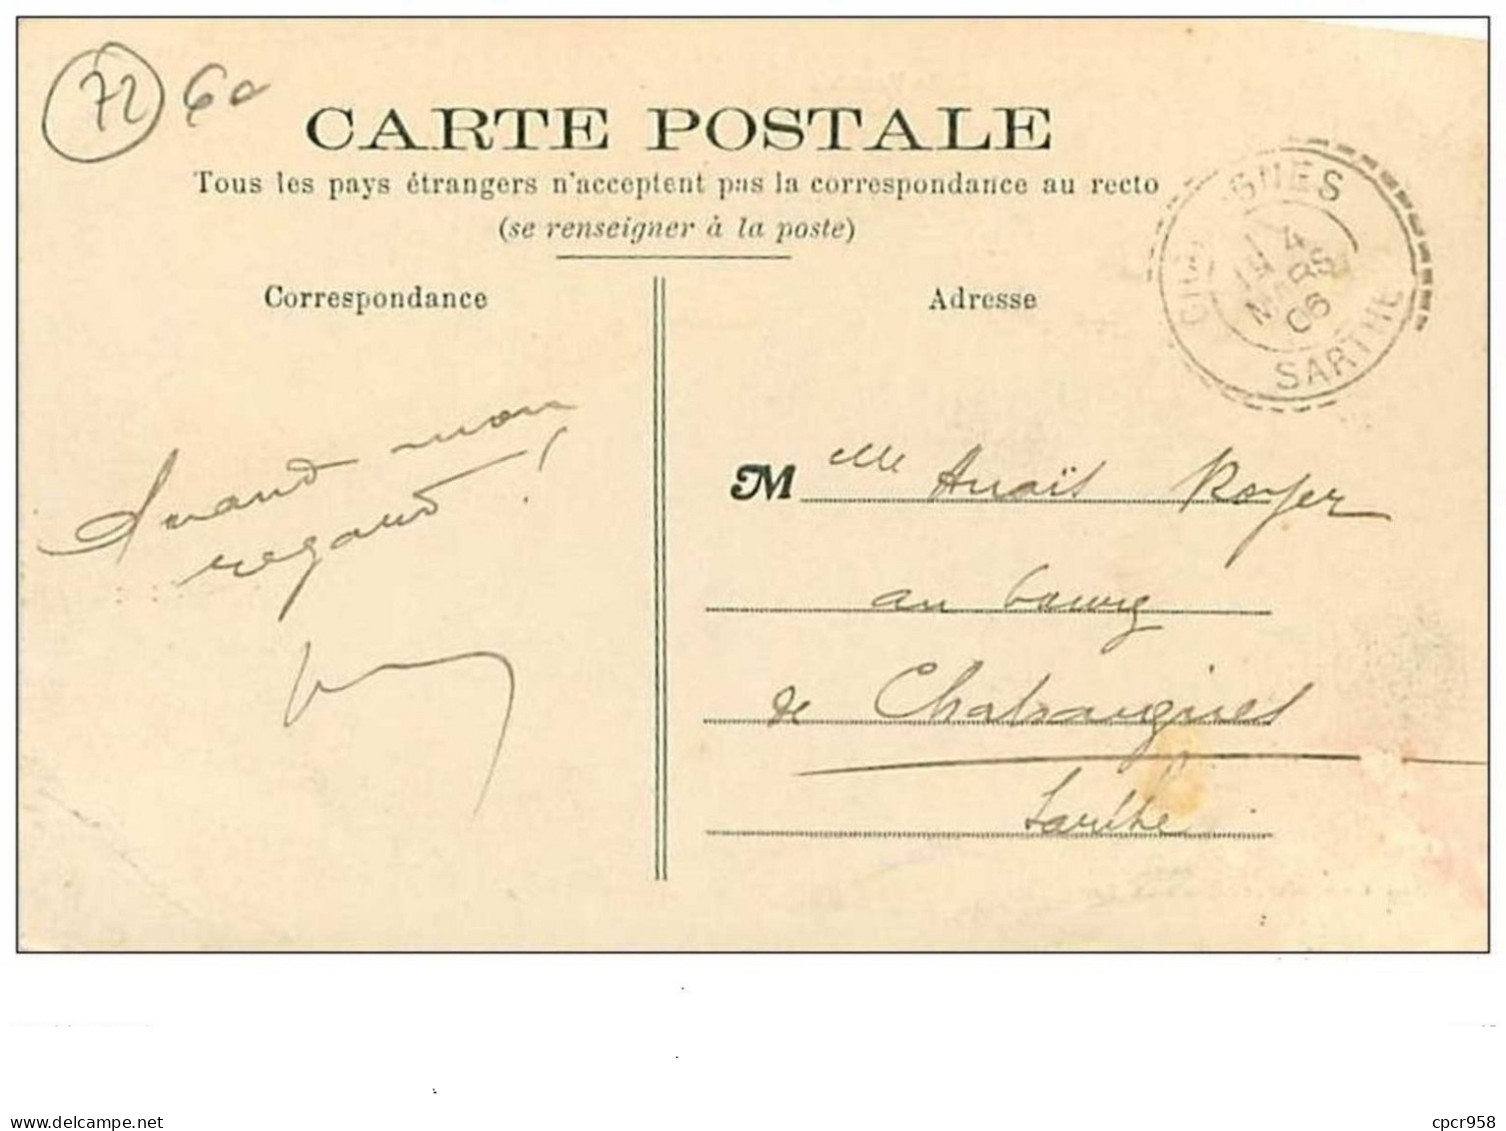 72 60
CARTE POSTALE
Tous les pays étrangers n'acceptent pas la correspondance au recto
(se renseigner à la poste)
GNES
4
MARS
06
SARTHE
Correspondance
Adresse
Quand mon
regard !
M elle Anaïs Royer
au bourg
de Chatraignes
Sarthe
cpcr958